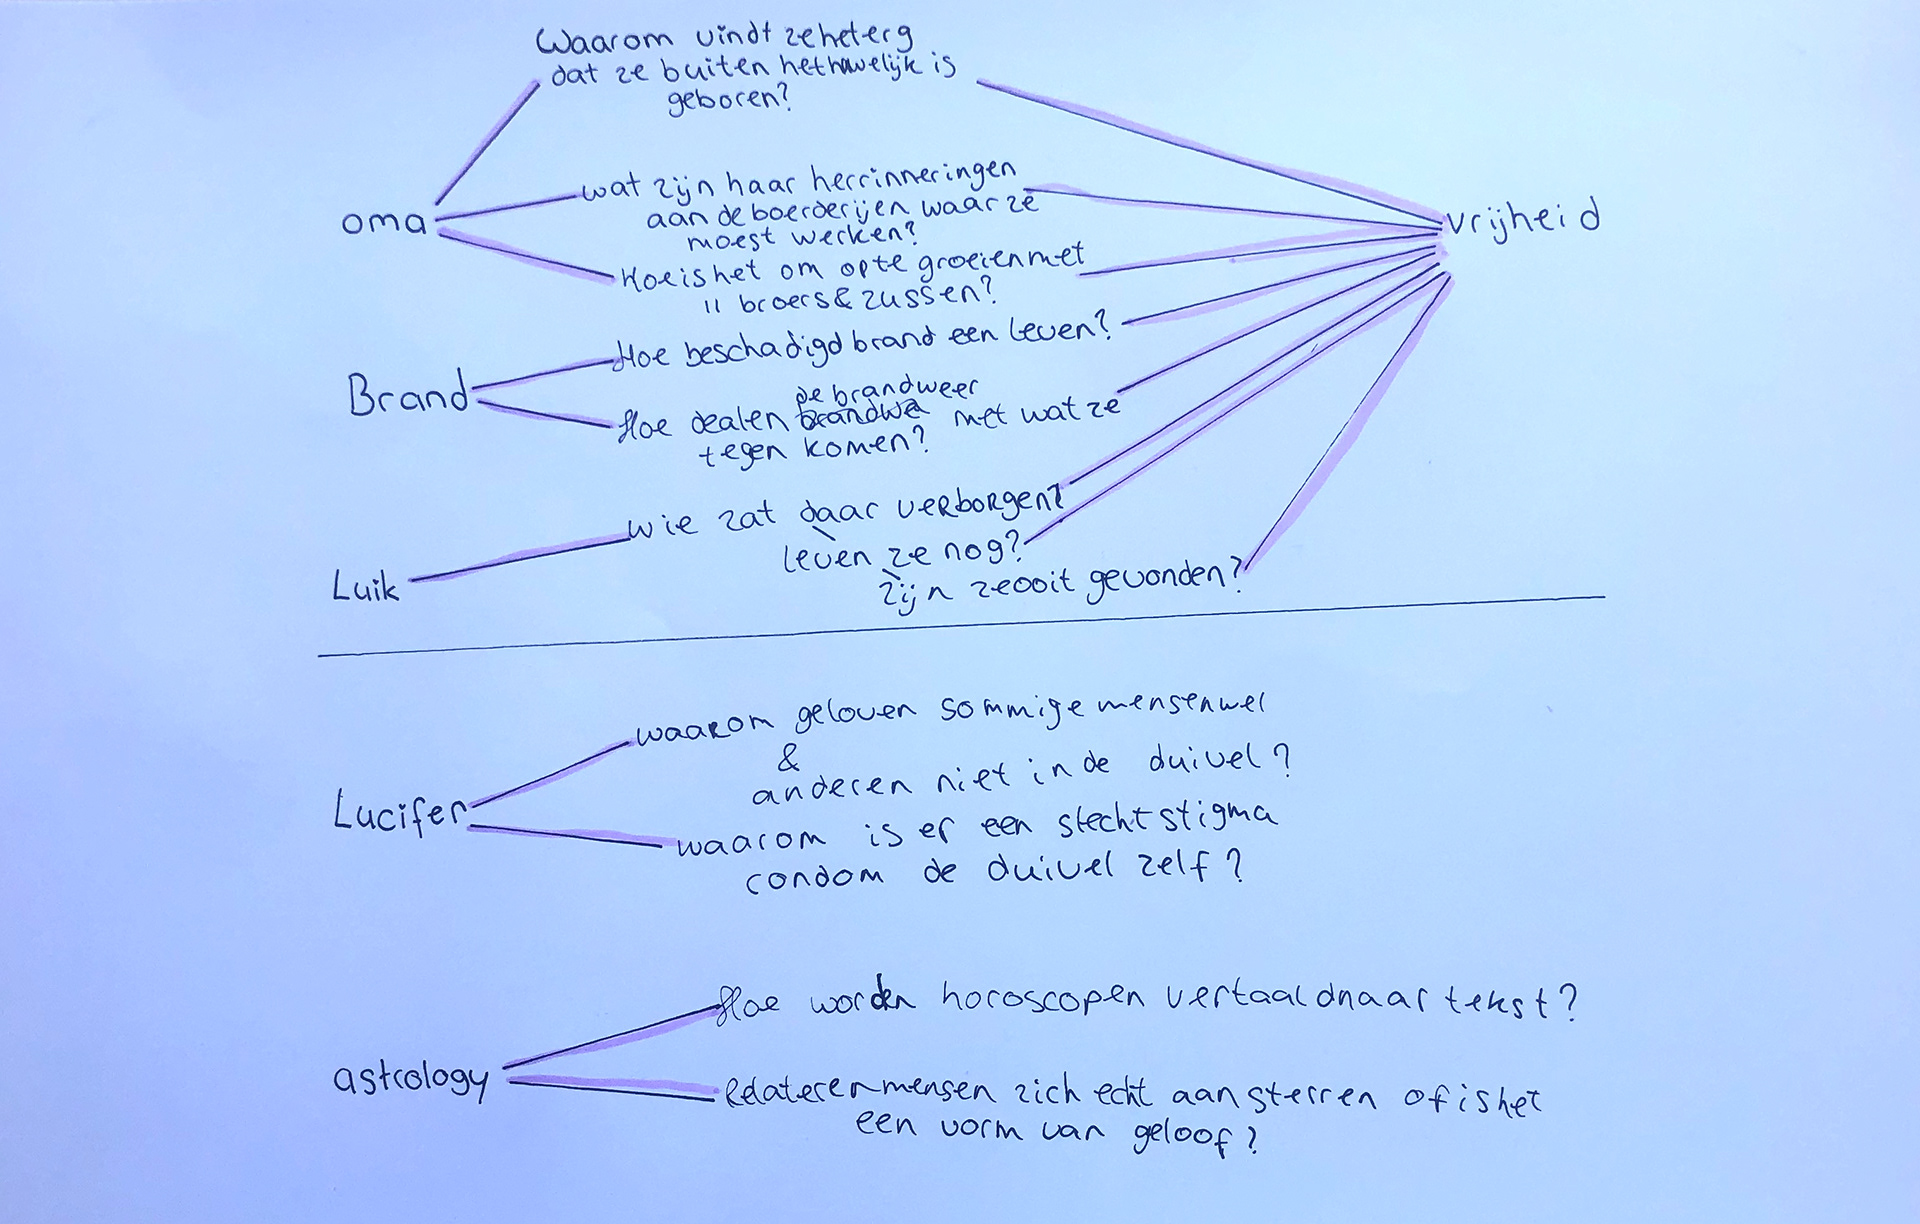 Waarom vindt ze het erg
dat ze buiten het huwelijk is
geboren?
wat zijn haar herrinneringen
aan de boerderijen waar ze
moest werken?
oma
vrijheid
Hoe is het om op te groeien met
11 broers & zussen?
Hoe beschadigd brand een leven?
Brand
de brandweer
Hoe dealen brandwe met wat ze
tegen komen?
wie zat daar verborgen?
leven ze nog?
Luik
zijn ze ooit gevonden?
waarom geloven sommige mensen wel
&
anderen niet in de duivel?
Lucifer
waarom is er een slecht stigma
rondom de duivel zelf?
Hoe worden horoscopen vertaald naar tekst?
astrology
Relateren mensen zich echt aan sterren of is het
een vorm van geloof?